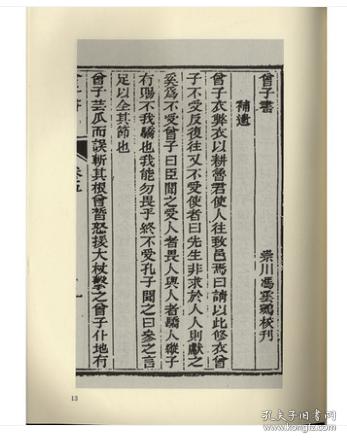 曾子書
崇川馮雲鵷校刊
補遺
曾子衣弊衣以耕魯君使人往致邑焉曰請以此修衣曾
子不受反復往又不受使者曰先生非求於人人則獻之
奚為不受曾子曰臣聞之受人者畏人與人者驕人縱子
有賜不我驕也我能勿畏乎終不受孔子聞之曰參之言
足以全其節也
曾子芸瓜而誤斬其根曾晳怒援大杖擊之曾子仆地有
卷五
13
孔夫子旧书网
www.kongfz.com